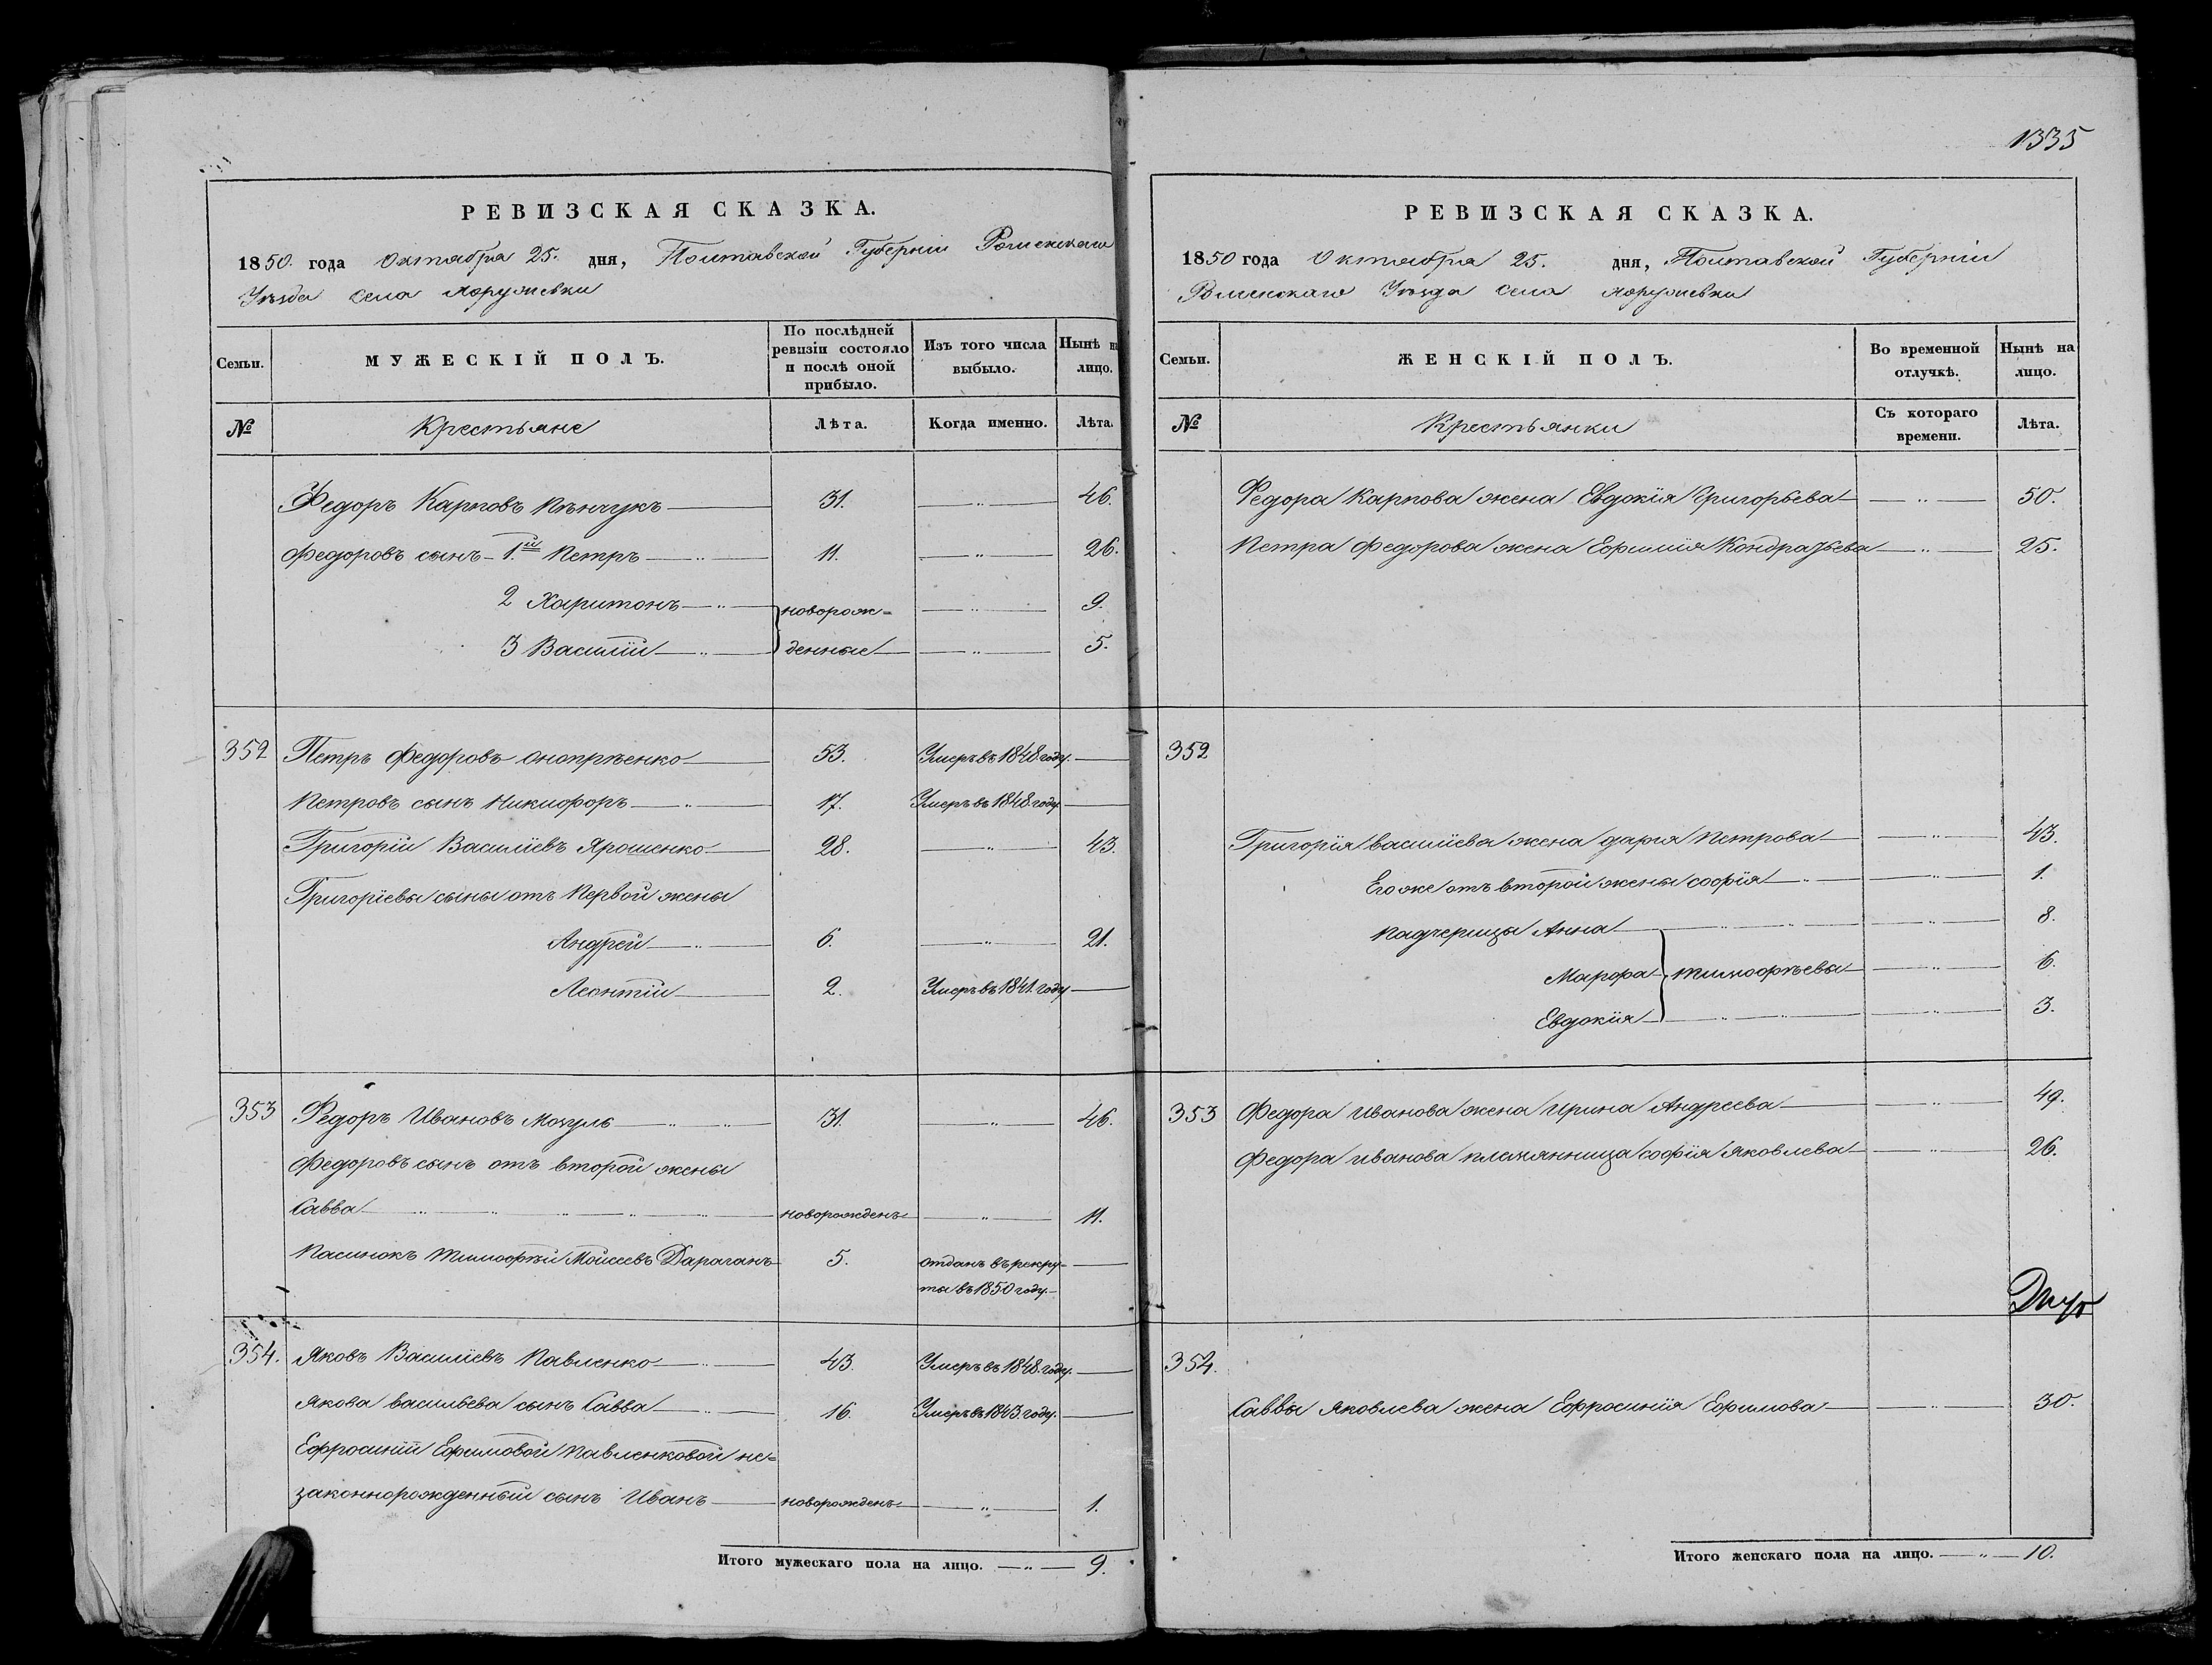 РЕВИЗСКАЯ СКАЗКА.
1850. года Октября 25. дня, Полтавской Губерніи Роменскаго
Уѣзда села
Семьи.
МУЖЕСКІЙ ПОЛЪ.
По послѣдней ревизіи состояло и послѣ оной прибыло.
Изъ того числа выбыло.
Нынѣ на лицо.
№ Крестьяне Лѣта. Когда именно. Лѣта.
Федоръ Карповъ 31. — „ — 46.
Федоровъ сынъ 1.й Петръ — „ — 11. — „ — 26.
2 Харитонъ — „ — новорож= — „ — 9.
3 Василій — „ — денные — „ — 5.
352 Петръ Федоровъ Онопрѣенко 53. Умеръ въ 1848. году. —
Петровъ сынъ Никифоръ — „ — 17. Умеръ въ 1848. году. —
Григорій Василіевъ Ярошенко 28. — „ — 43.
Григоріевы сыны отъ первой жены
Андрей — „ — 6. — „ — 21.
Леонтій 2. Умеръ въ 1841. году —
353 Федоръ Ивановъ 31. — „ — 46.
Федоровъ сынъ отъ второй жены
Савва — „ — новорожденъ — „ — 11.
Пасинокъ Тимофѣй Моисеевъ Дараганъ 5. отданъ въ рекру= —
ты въ 1850 году. —
354. Яковъ Василіевъ Павленко — „ — 43. Умеръ въ 1848. году. —
Якова Васильева сынъ Савва — „ — 16. Умеръ въ 1843. году. —
Ефросиніи Ефимовой Павленковой не=
законнорожденный сынъ Иванъ новорожденъ — „ — 1.
Итого мужескаго пола на лицо. — „ — 9.
1335
РЕВИЗСКАЯ СКАЗКА.
1850 года Октября 25. дня, Полтавской Губерніи
Роменскаго Уѣзда села
Семьи.
ЖЕНСКІЙ ПОЛЪ.
Во временной отлучкѣ.
Нынѣ на лицо.
№ Крестьянки Съ котораго времени. Лѣта.
Федора Карпова жена Евдокія Григорьева — „ — 50.
Петра Федорова жена Ефимія Кондратьева — „ — 25.
352
Григорія Василіева жена Дарія Петрова — „ — 43.
Его же отъ второй жены Софія — „ — 1.
падчерицы Анна — „ — 8.
Марфа Тимофѣевы — „ — 6.
Евдокія — „ — 3.
353 Федора Иванова жена Ирина Андреева — „ — 49.
Федора Иванова племянница Софія Яковлева — „ — 26.
354.
Саввы Яковлева жена Ефросинія Ефимова — „ — 30.
Итого женскаго пола на лицо. — „ — 10.